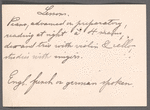 Lessons.
Piano, advanced or preparatory
reading at sight 2 & 4 hands,
duo and trio with violin & cello
studies with singers.
Engl. french or german spoken